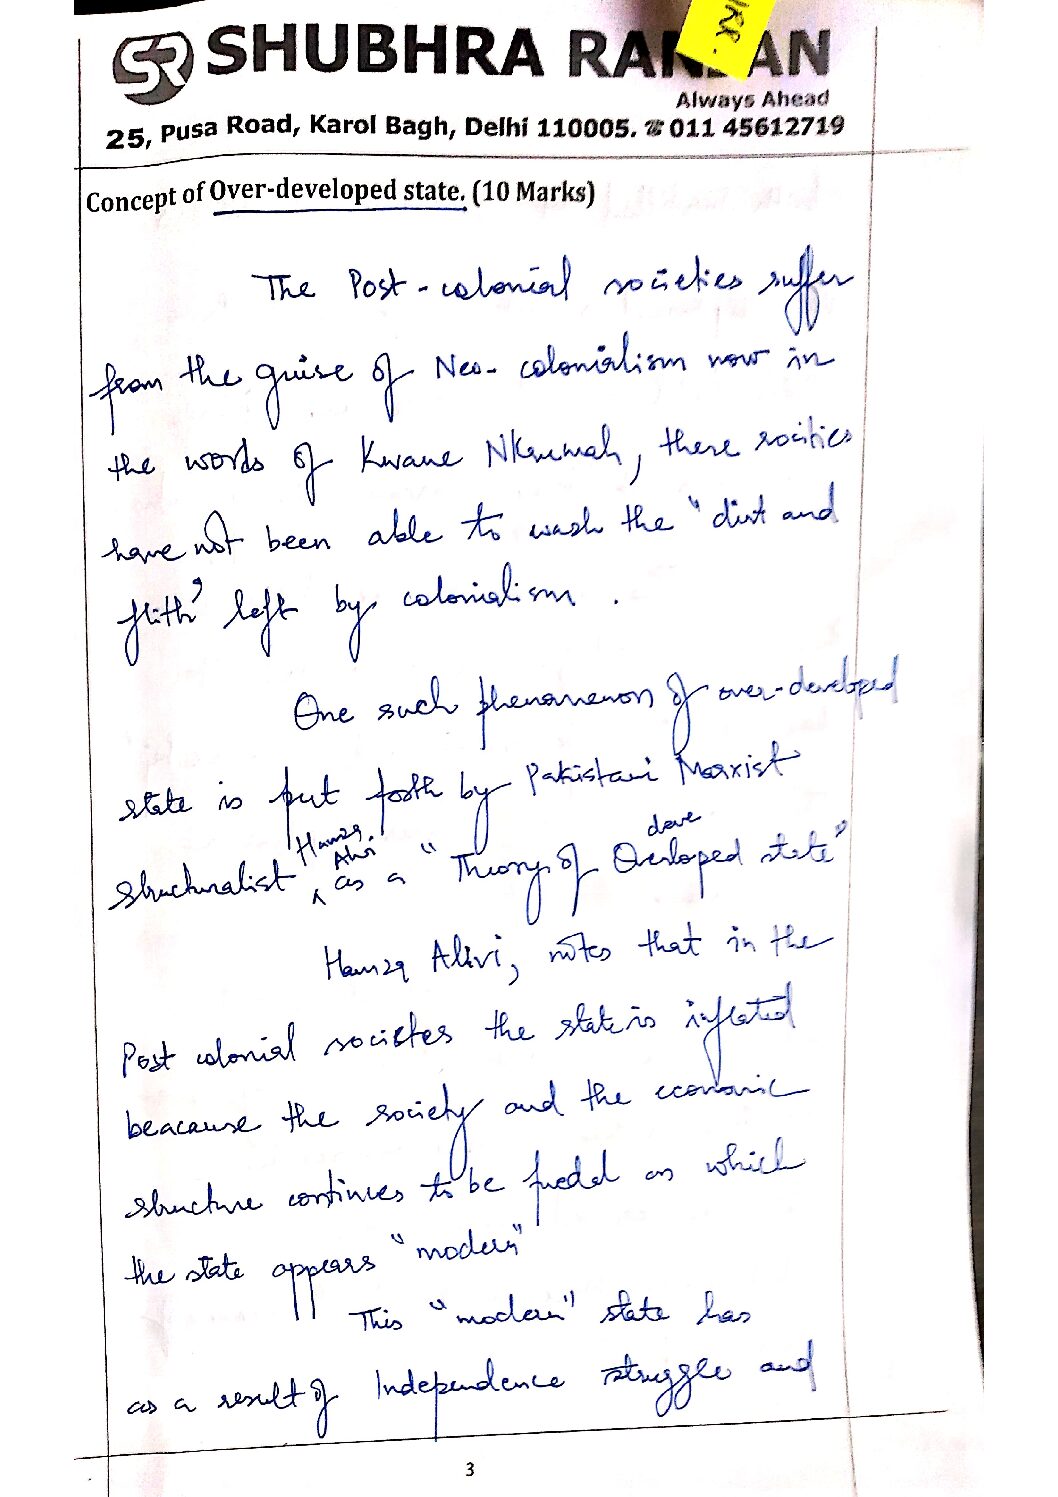 SR SHUBHRA RANJAN
Always Ahead
25, Pusa Road, Karol Bagh, Delhi 110005. ☎ 011 45612719
Concept of Over-developed state. (10 Marks)
The Post-colonial societies suffer
from the guise of Neo-colonialism now in
the words of Kwane Nkrumah, these socities
have not been able to wash the "dirt and
flith" left by colonialism.
One such phenomenon of over-developed
state is put forth by Pakistani Marxist
structuralist Hamza Alvi as a "Theory of Overdeveloped state"
Hamza Alivi, notes that in the
Post colonial societes the state is inflated
beacause the society and the economic
structure continues to be fuedal on which
the state appears "modern"
This "modern" state has
as a result of Independence struggle and
3